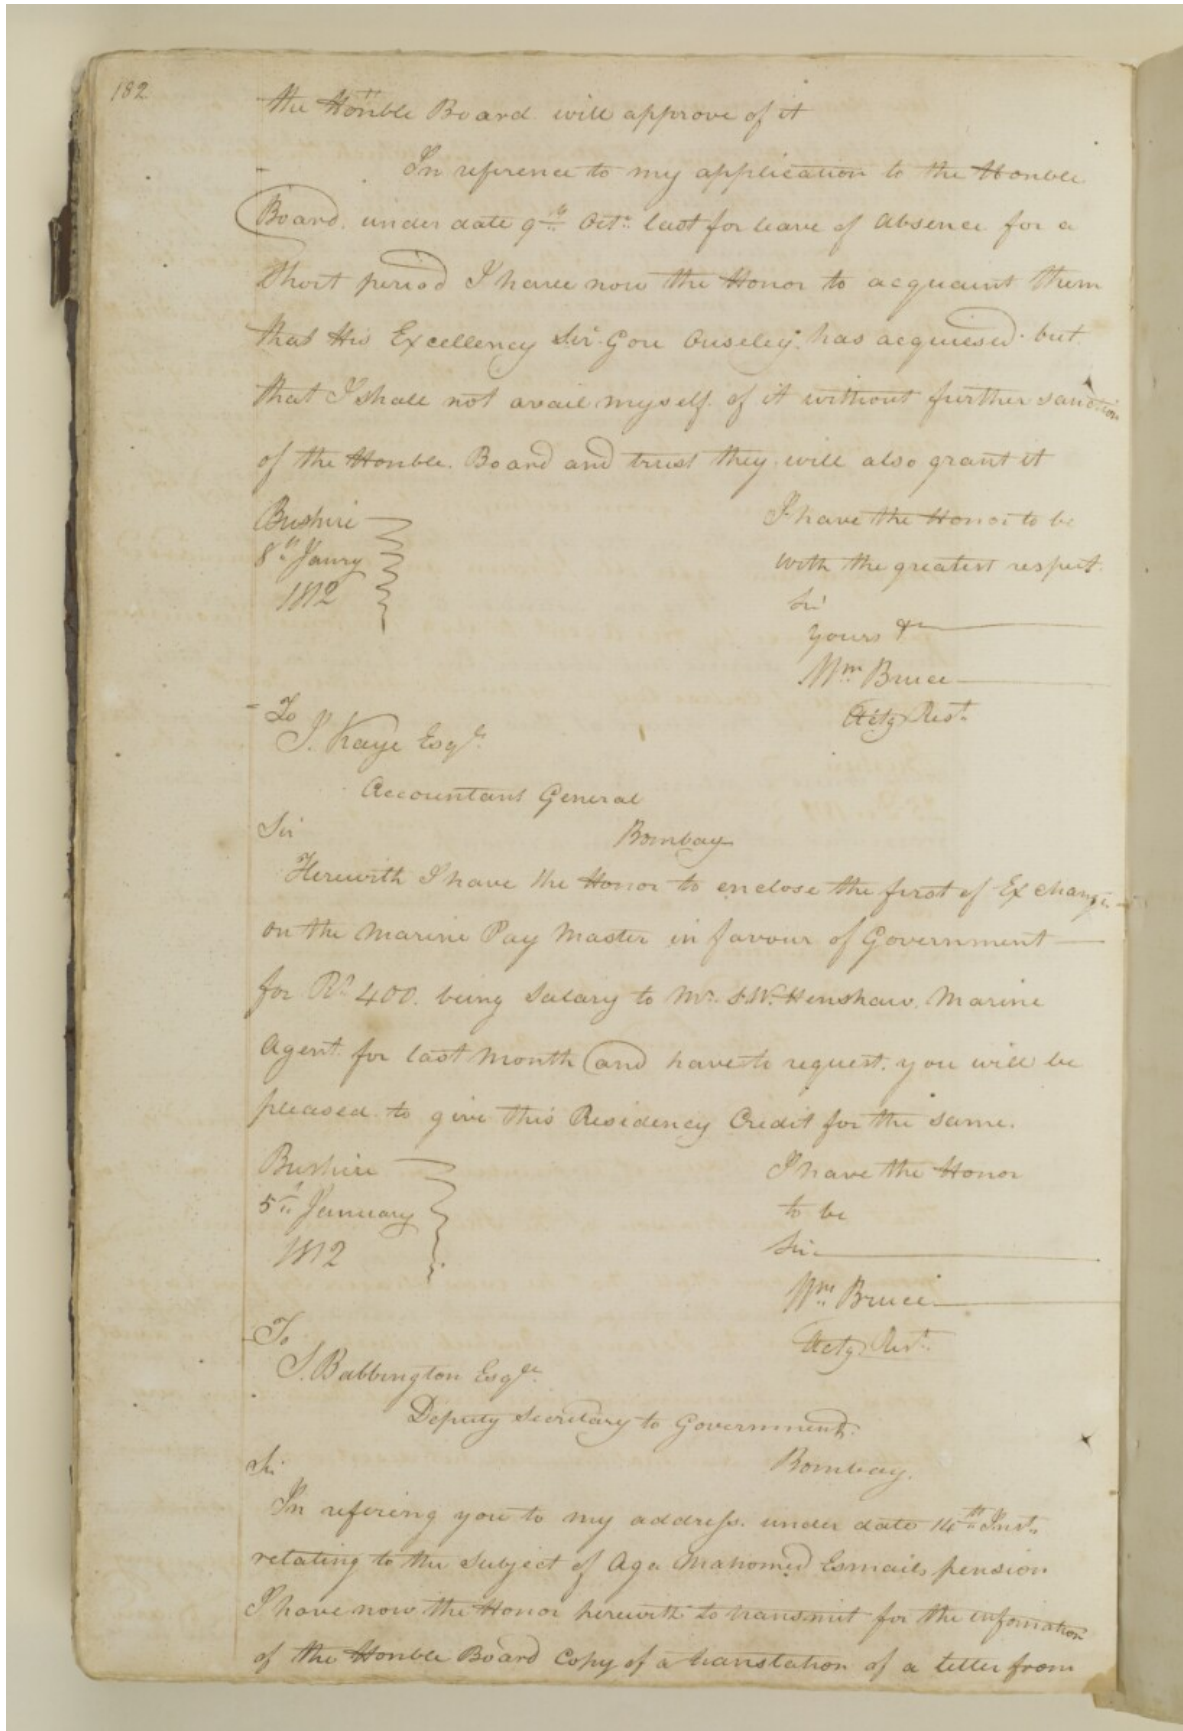 182
the Honble Board will approve of it
In reference to my application to the Honble
Board under date 9th Octr last for leave of absence for a
Short period I have now the Honor to acquaint them
that His Excellency Sir Gore Ouseley has acquiesed but
that I shall not avail myself of it without further sanction
of the Honble Board and trust they will also grant it
Bushire
8th Janry
1812
I have the Honor to be
with the greatest respect
Sir
Yours &
Wm Bruce
Actg Rest
To
J. Kaye Esqr
Accountant General
Bombay
Sir
Herewith I have the Honor to enclose the first of Exchange
on the Marine Pay Master in favour of Government
for Rs 400. being Salary to Mr. Henshaw Marine
Agent for last Month and have to request you will be
pleased to give this Residency Credit for the same.
Bushire
5th January
1812
I have the Honor
to be
Sir
Wm Bruce
Actg Rest
To
J. Babbington Esqr
Deputy Secretary to Government
Bombay.
Sir
In refering you to my address under date 14th Inst
relating to the Subject of Aga Mahomed Esmails pension
I have now the Honor herewith to transmit for the information
of the Honble Board Copy of a translation of a letter from